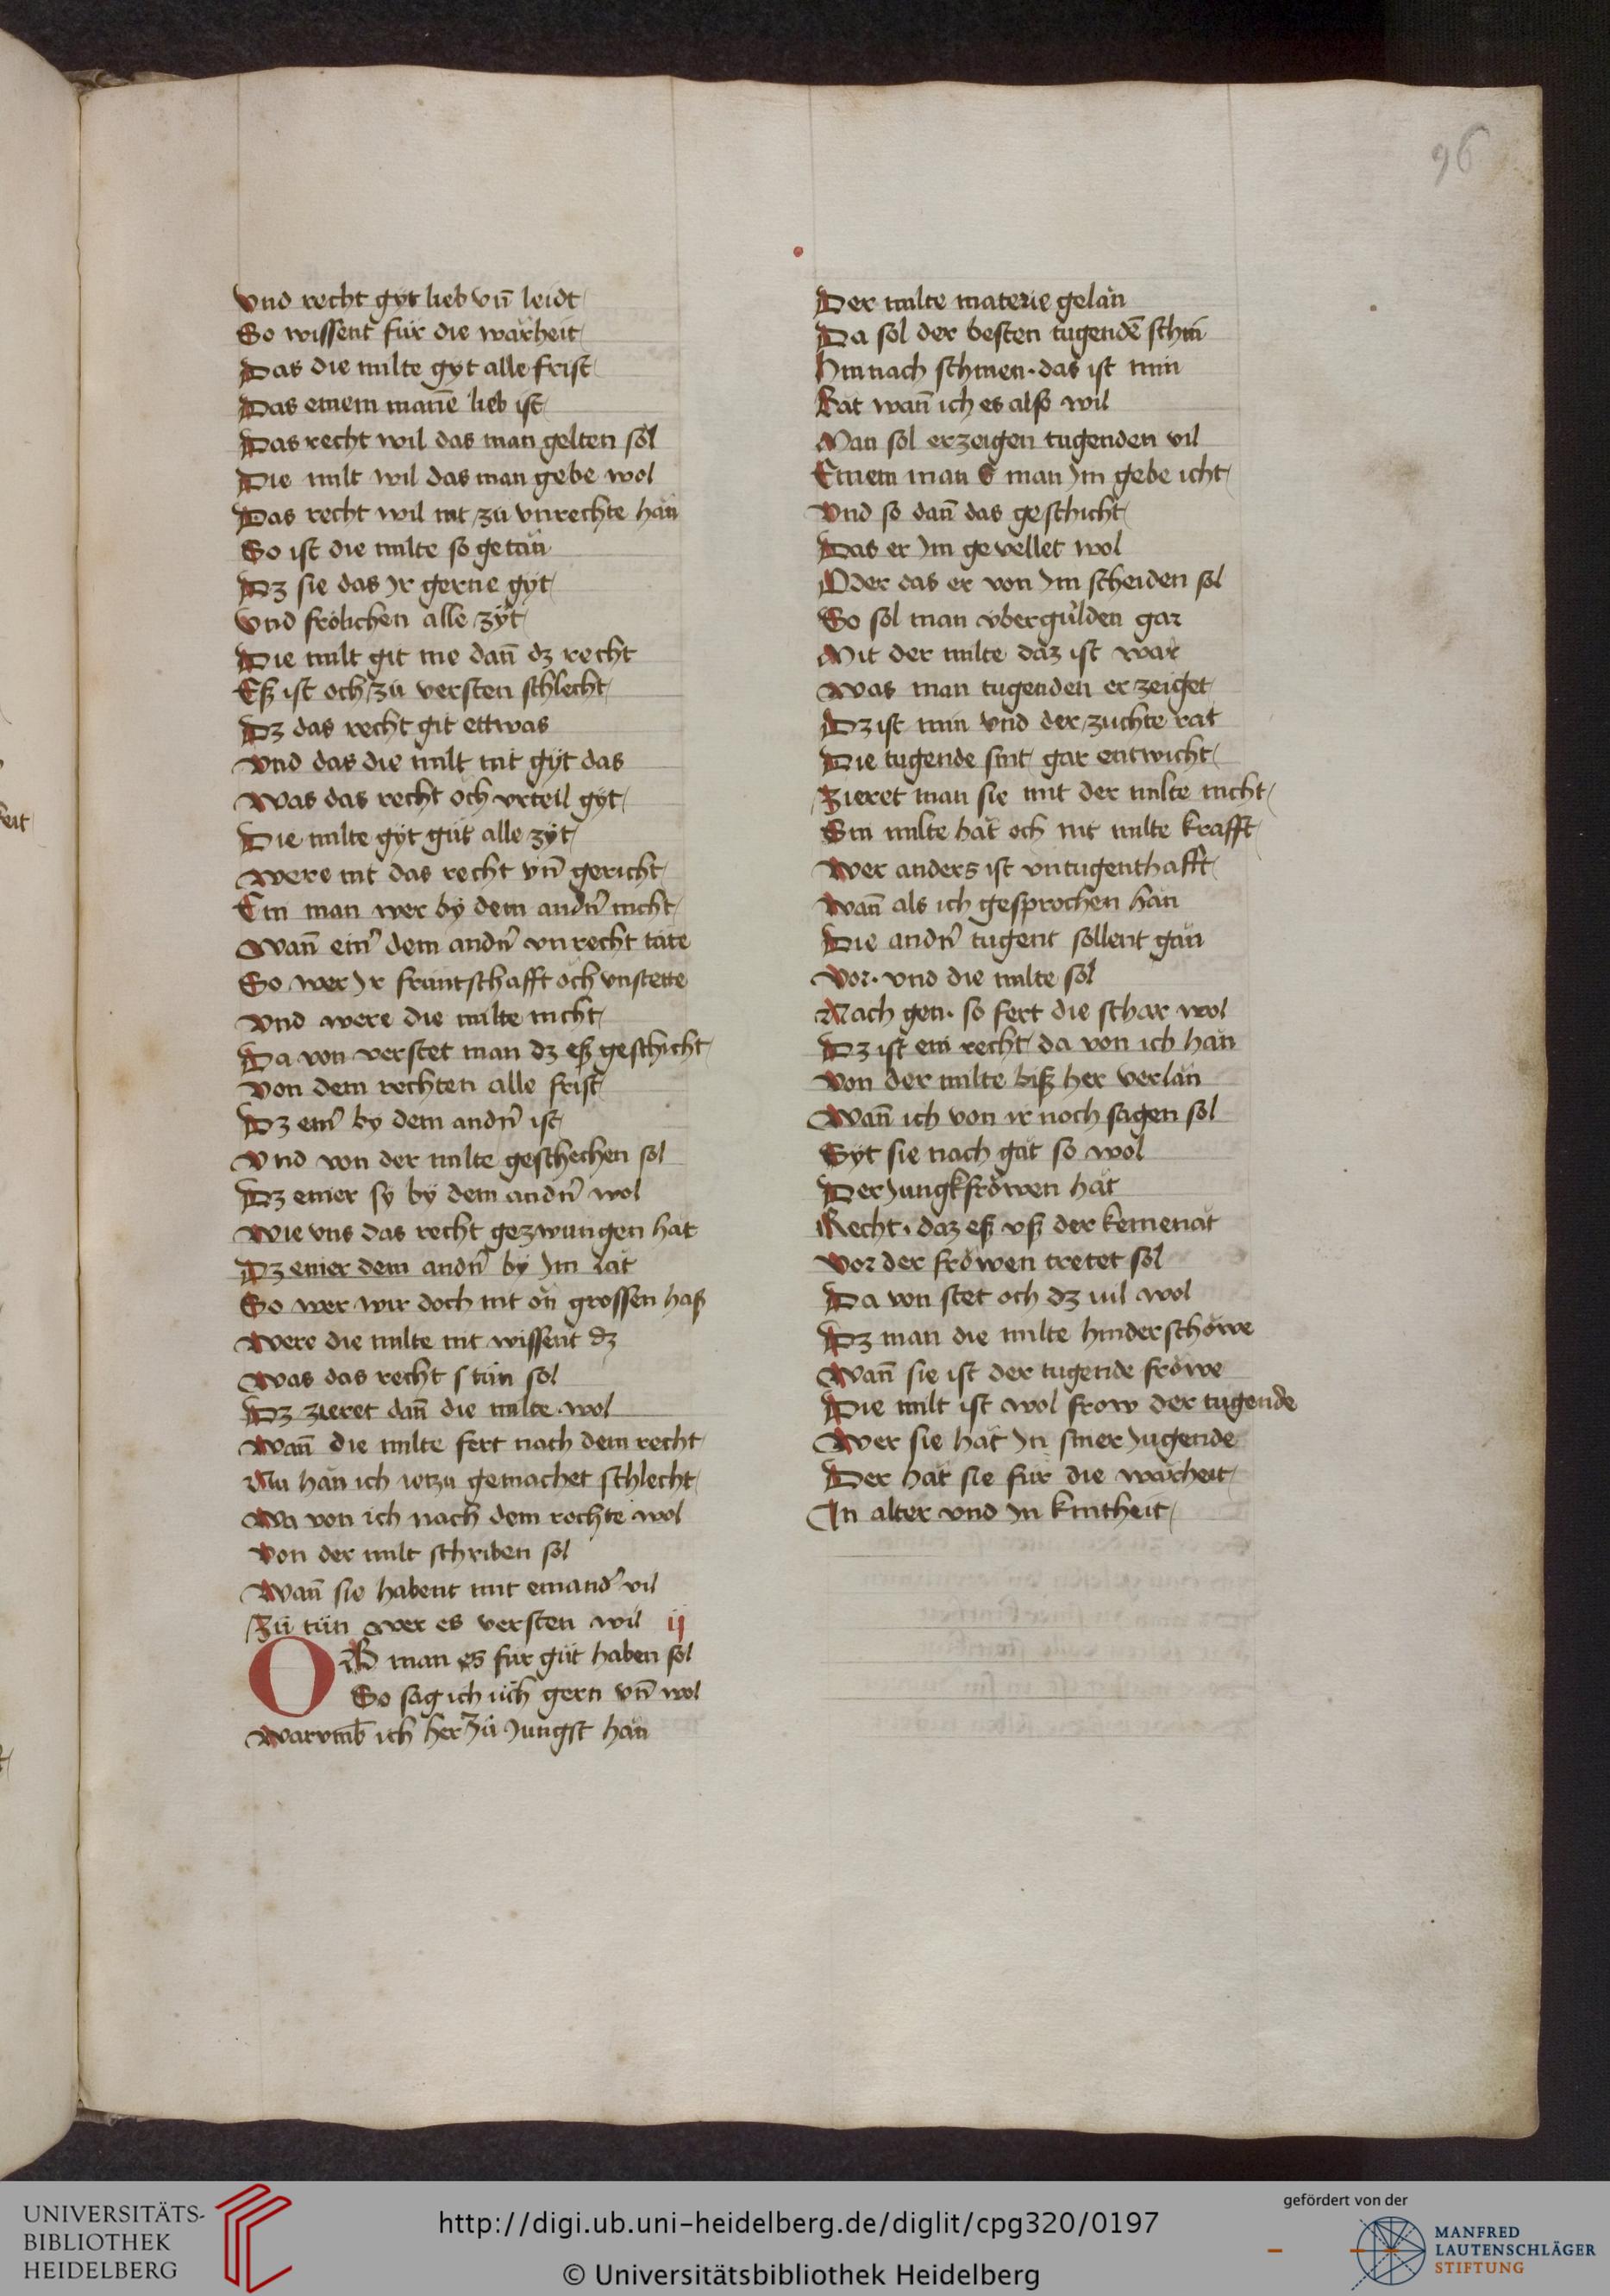 96
Vnd recht gyt lieb vn̄ leidt
So wissent für die warheit
Das die milte gyt alle frist
Das einem mañe lieb ist
Das recht wil das man gelten sol
Die milt wil das man gebe wol
Das recht wil nit zü vnrechte han
So ist die milte so getän
Dz sie das Jr gerne gyt
Vnd frölichen alle zÿt
Die milt git me dañ dz recht
Eß ist och zü versten schlecht
Dz das recht git ettwas
Vnd das die milt nit gÿt das
Was das recht och vrteil gÿt
Die milte gÿt güt alle zÿt
Were nit das recht vn̄ gericht
Ein man wer bÿ dem andn̄ nicht
Wañ ein̄ dem andn̄ vnrecht täte
So wer Jr früntschafft och vnstette
Vnd were die milte nicht
Da von verstet man dz eß geschicht
Von dem rechten alle frist
Dz ein̄ by dem andn̄ ist
Vnd von der milte geschechen sol
Dz einer sÿ bÿ dem andn̄ wol
Wie vns das recht gezwungen hat
Dz einer dem andn̄ bÿ Jm lät
So wer wir doch nit on grossen haß
Were die milte nit wissent dz
Was das recht s tün sol
Dz zieret dañ die milte wol
Wañ die milte fert nach dem recht
Nu hän ich ietzu gemachet schlecht
Wa von ich nach dem rechte wol
Von der milt schriben sol
Wañ sie habent mit einand̄ vil
Zü tün wer es versten wil ij
OB man es für güt haben sol
So sag ich üch gern vn̄ wol
Warvmb̄ ich her Zü Jungst hän
Der milte materie gelän
Da sol der besten tugendē schin
Hin nach schinen · das ist min
Rat wañ ich es also wil
Man sol erzeigen tugenden vil
Einem man E man Jm gebe icht
Vnd so dañ das geschicht
Das er Jm gevellet wol
Oder das er von Jm scheiden sol
So sol man vbergülden gar
Mit der milte daz ist war
Was man tugenden erzeiget
Dz ist min vnd der zuchte rat
Die tugende sint gar entwicht
Zieret man sie mit der milte nicht
Sin milte hät och nit milte krafft
Wer anders ist vntugenthafft
Wañ als ich gesprochen hän
Die andn̄ tugent sollent gän
Vor · vnd die milte sol
Nach gen · so fert die schar wol
Dz ist ein recht da von ich hän
Von der milte biß her verlän
Wañ ich von ir noch sagen sol
Syt sie nach gät so wol
Der Jungkfröwen hät
Recht · daz eß vß der kemenät
Vor der fröwen tretet sol
Da von stet och dz vil wol
Dz man die milte hinderschöwe
Wañ sie ist der tugende fröwe
Die milt ist wol frow der tugende
Wer sie hät Jn siner Jugende
Der hat sie für die wärheit
Jn alter vnd Jn kintheit
UNIVERSITÄTS-
BIBLIOTHEK
HEIDELBERG
http://digi.ub.uni-heidelberg.de/diglit/cpg320/0197
© Universitätsbibliothek Heidelberg
gefördert von der
MANFRED
LAUTENSCHLÄGER
STIFTUNG